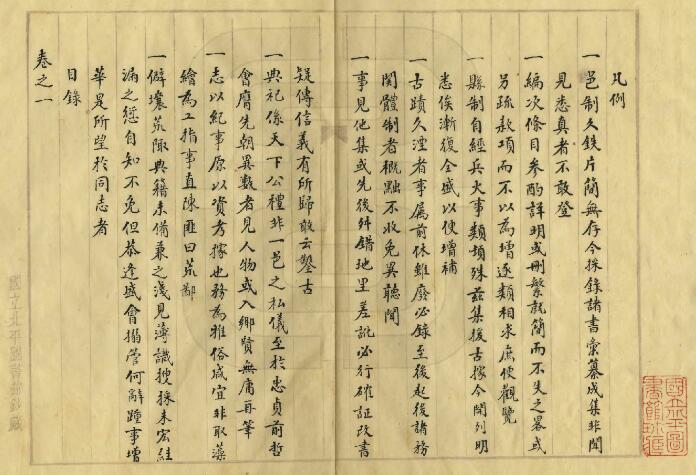 凡例
一邑制久鉄片簡無存今採錄諸書彙纂成集非聞
見悉真者不敢登
一編次條目參酌詳明或刪繁就簡而不失之畧或
另疏款項而不以為增逐類相求庶便觀覽
一縣制自經兵火事類頗殊茲集援古據今開列明
悉俟漸復全盛以便增補
一古蹟久湮者事屬前休雖廢必錄至後起後諸務
関體制者槪點不收免異聽聞
一事見他集或先後舛錯地里差訛必行確証改書
疑傳信義有所歸敢云鑿古
一典祀係天下公禮非一邑之私儀至於忠貞前哲
會膺先朝異數者見人物或入鄉賢無庸再筆
一志以紀事原以資考據也務為雅俗咸宜非取藻
繪為工指事直陳匪曰荒鄙
一僻壤荒陬典籍未備兼之淺見薄識搜採未宏絓
漏之愆自知不免但恭逢盛會搦管何辭踵事增
華是所望於同志者
目錄
卷之一